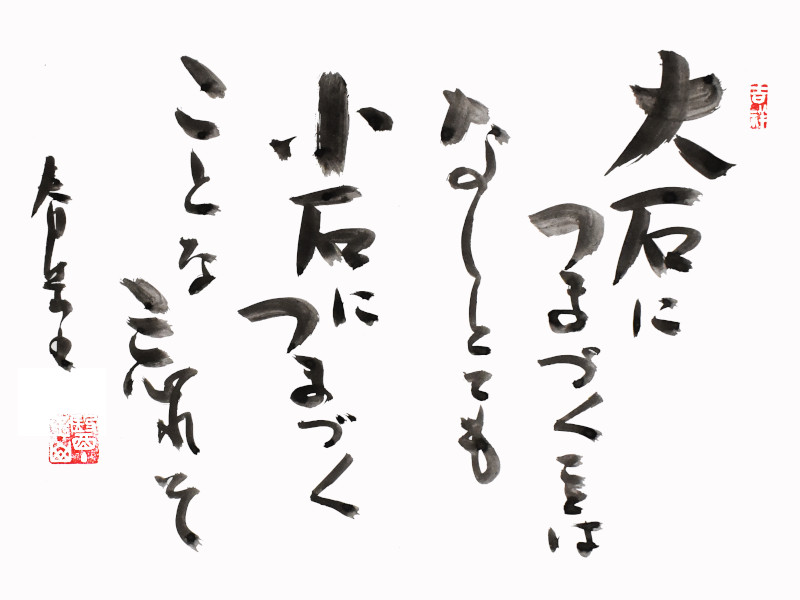 吉祥
大石に
つまづくことは
なしとても
小石に
つまづく
ことな
忘れそ